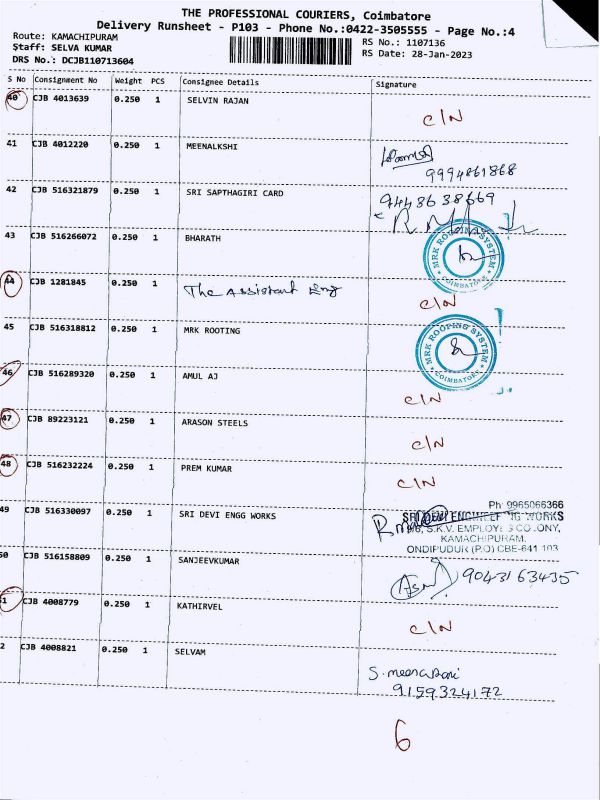 THE PROFESSIONAL COURIERS, Coimbatore
Delivery Runsheet - P103 - Phone No.:0422-3505555 - Page No.:4
Route: KAMACHIPURAM
RS No.: 1107136
Staff: SELVA KUMAR
RS Date: 28-Jan-2023
DRS No.: DCJB110713604
S No Consignment No Weight PCS Consignee Details Signature
40 CJB 4013639 0.250 1 SELVIN RAJAN
C/N
41 CJB 4012220 0.250 1 MEENALKSHI
9994861868
42 CJB 516321879 0.250 1 SRI SAPTHAGIRI CARD
9448638669
43 CJB 516266072 0.250 1 BHARATH
MRK ROOFING SYSTEM
COIMBATORE
44 CJB 1281845 0.250 1 The Assistant Eng
C/N
45 CJB 516318812 0.250 1 MRK ROOTING
MRK ROOFING SYSTEM
COIMBATORE
46 CJB 516289320 0.250 1 AMUL AJ
C/N
47 CJB 89223121 0.250 1 ARASON STEELS
C/N
48 CJB 516232224 0.250 1 PREM KUMAR
C/N
Ph: 9965066366
49 CJB 516330097 0.250 1 SRI DEVI ENGG WORKS
SRI DEVI ENGINEERING WORKS
S.K.V. EMPLOYEES COLONY,
KAMACHIPURAM.
ONDIPUDUR (P.O) CBE-641 103
50 CJB 516158809 0.250 1 SANJEEVKUMAR
9043163435
51 CJB 4008779 0.250 1 KATHIRVEL
C/N
2 CJB 4008821 0.250 1 SELVAM
S. meenarani
9159324172
6